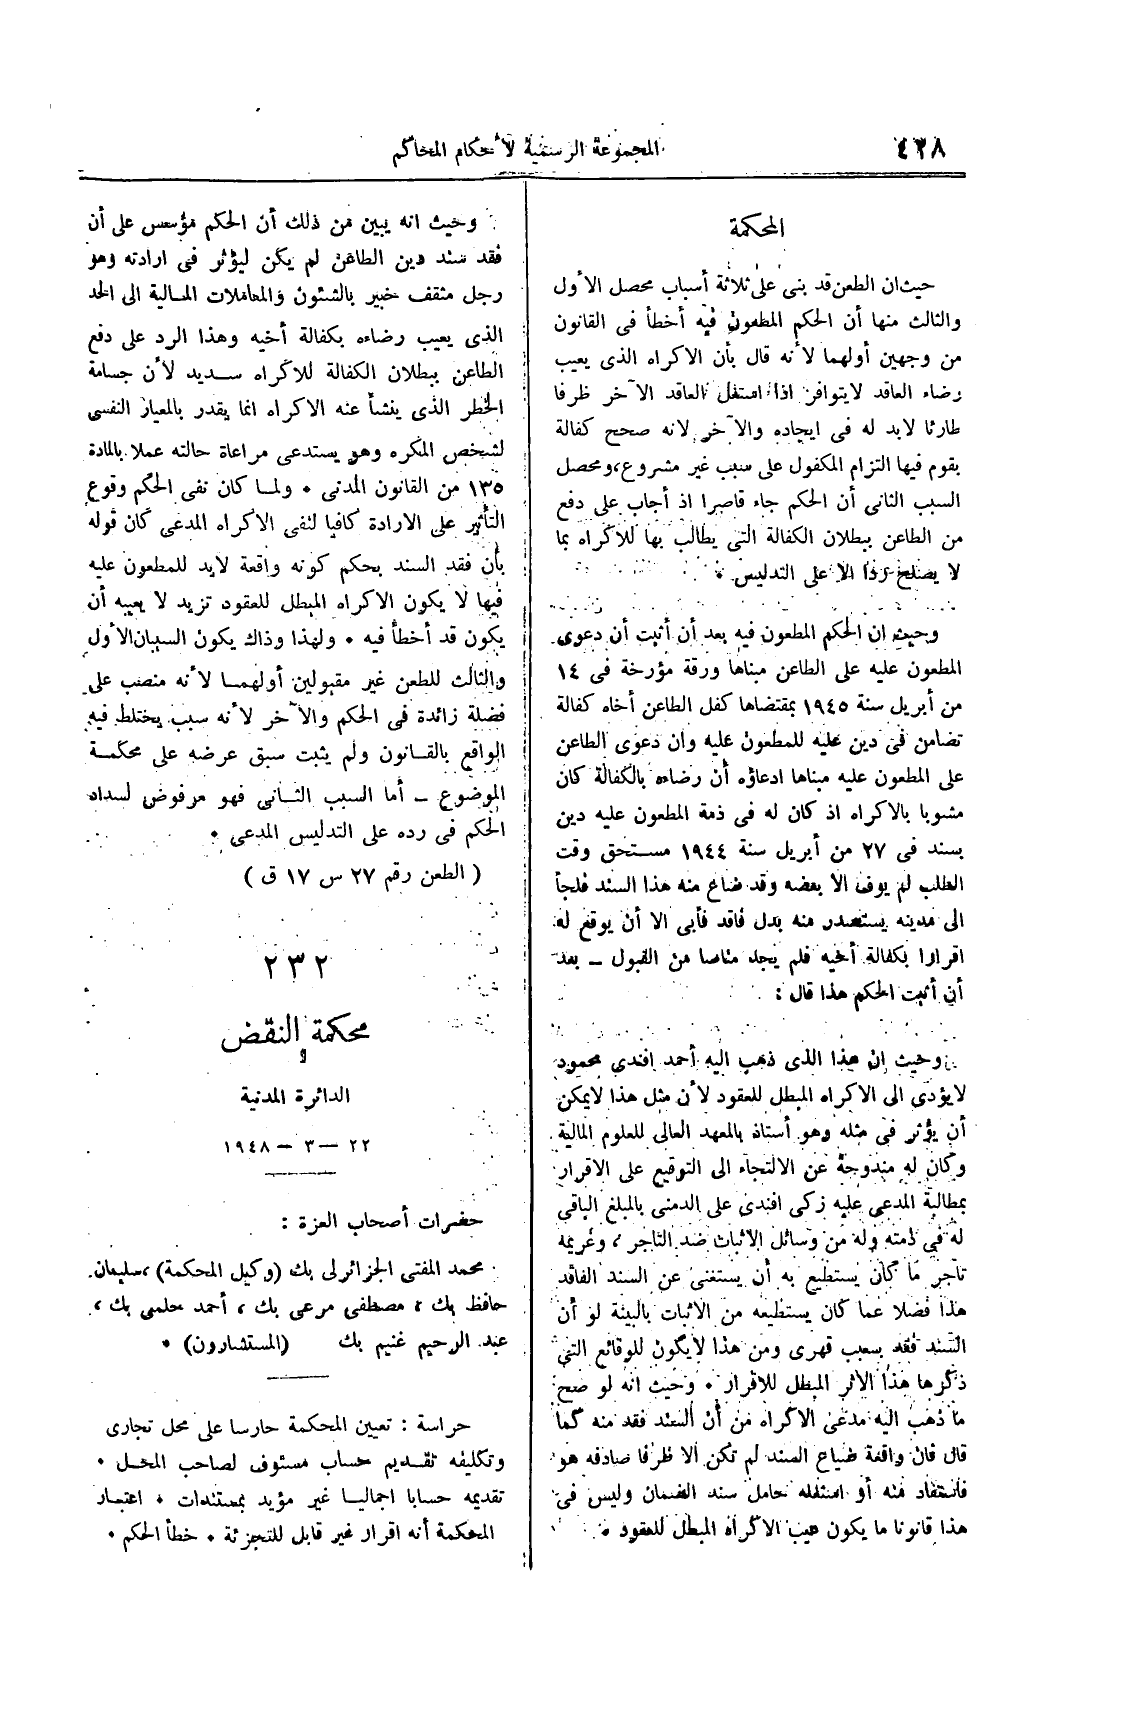 ٤٢٨
المجموعة الرسمية لأحكام المحاكم
المحكمة
حيث ان الطعن قد بنى على ثلاثة أسباب محصل الأول
والثالث منها أن الحكم المطعون فيه أخطأ فى القانون
من وجهين أولهما لأنه قال بأن الاكراه الذى يعيب
رضاء العاقد لايتوافر اذا استغل العاقد الآخر ظرفا
طارئا لابد له فى ايجاده والآخر لانه صحح كفالة
يقوم فيها التزام المكفول على سبب غير مشروع، ومحصل
السبب الثانى أن الحكم جاء قاصرا اذ أجاب على دفع
من الطاعن ببطلان الكفالة التى يطالب بها للاكراه بما
لا يصلح ردا الا على التدليس .
وحيث إن الحكم المطعون فيه بعد أن أثبت أن دعوى
المطعون عليه على الطاعن مبناها ورقة مؤرخة فى ١٤
من أبريل سنة ١٩٤٥ بمقتضاها كفل الطاعن أخاه كفالة
تضامن فى دين عليه للمطعون عليه وأن دعوى الطاعن
على المطعون عليه مبناها ادعاؤه أن رضاءه بالكفالة كان
مشوبا بالاكراه اذ كان له فى ذمة المطعون عليه دين
بسند فى ٢٧ من أبريل سنة ١٩٤٤ مستحق وقت
الطلب لم يوف الا بعضه وقد ضاع منه هذا السند فلجأ
الى مدينه يستصدر منه بدل فاقد فأبى الا أن يوقع له
اقرارا بكفالة أخيه فلم يجد مناصا من القبول – بعد
أن أثبت الحكم هذا قال :
وحيث إن هذا الذى ذهب اليه أحمد افندى محمود
لايؤدى الى الاكراه المبطل للعقود لأن مثل هذا لايمكن
أن يؤثر فى مثله وهو أستاذ بالمعهد العالى للعلوم المالية
وكان له مندوحة عن الالتجاء الى التوقيع على الاقرار
بمطالبة المدعى عليه زكى افندى على الدمنى بالمبلغ الباقى
له فى ذمته وله من وسائل الاثبات ضد التاجر ، وغريمه
تاجر ما كان يستطيع به أن يستغنى عن السند الفاقد
هذا فضلا عما كان يستطيعه من الاثبات بالبينة لو أن
السند فقد بسبب قهرى ومن هذا لايكون للوقائع التى
ذكرها هذا الأثر المبطل للاقرار . وحيث انه لو صح
ما ذهب اليه مدعى الاكراه من أن السند فقد منه كما
قال فان واقعة ضياع السند لم تكن الا ظرفا صادفه هو
فاستفاد منه أو استغله حامل سند الضمان وليس فى
هذا قانونا ما يكون عيب الاكراه المبطل للعقود .
وحيث انه يبين من ذلك أن الحكم مؤسس على أن
فقد سند دين الطاعن لم يكن ليؤثر فى ارادته وهو
رجل مثقف خبير بالشئون والمعاملات المالية الى الحد
الذى يعيب رضاءه بكفالة أخيه وهذا الرد على دفع
الطاعن ببطلان الكفالة للاكراه سديد لأن جسامة
الخطر الذى ينشأ عنه الاكراه انما يقدر بالمعيار النفسى
لشخص المكره وهو يستدعى مراعاة حالته عملا بالمادة
١٣٥ من القانون المدنى . ولما كان نفى الحكم وقوع
التأثير على الارادة كافيا لنفى الاكراه المدعى كان قوله
بأن فقد السند بحكم كونه واقعة لابد للمطعون عليه
فيها لا يكون الاكراه المبطل للعقود تزيد لا يعيبه أن
يكون قد أخطأ فيه . ولهذا وذاك يكون السببان الأول
والثالث للطعن غير مقبولين أولهما لأنه منصب على
فضلة زائدة فى الحكم والآخر لأنه سبب يختلط فيه
الواقع بالقانون ولم يثبت سبق عرضه على محكمة
الموضوع – أما السبب الثانى فهو مرفوض لسداد
الحكم فى رده على التدليس المدعى .
( الطعن رقم ٢٧ س ١٧ ق )
٢٣٢
محكمة النقض
و
الدائرة المدنية
٢٢ – ٣ – ١٩٤٨
حضرات أصحاب العزة :
محمد المفتى الجزائرلى بك (وكيل المحكمة) ، سليمان
حافظ بك ، مصطفى مرعى بك ، أحمد حلمى بك ،
عبد الرحيم غنيم بك (المستشارون) .
حراسة : تعيين المحكمة حارسا على محل تجارى
وتكليفه تقديم حساب مستوف لصاحب المحل .
تقديمه حسابا اجماليا غير مؤيد بمستندات . اعتبار
المحكمة أنه اقرار غير قابل للتجزئة . خطأ الحكم .